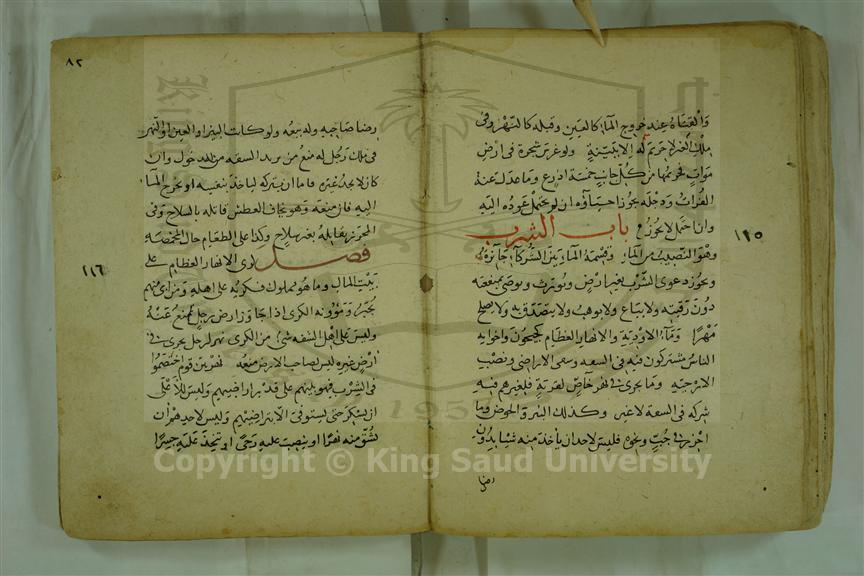 والقناة عند خروج الماء كالعين وقبله كالنهر وفي
ملك الغير لا حريم له الا ببينة ولو غرس شجرة في ارض
موات فحريمها من كل جانب خمسة اذرع وما عدل عنه
الفرات ودجلة يجوز احياؤه ان لم يحتمل عوده اليه
وان احتمل لا يجوز باب الشرب
وهو النصيب من الماء وقسمة الماء بين الشركاء جائزة
ويجوز دعوى الشرب بغير ارض ويورث ويوصى بمنفعته
دون رقبته ولا يباع ولا يوهب ولا يتصدق به ولا يصلح
مهرا وماء الاودية والانهار العظام كجيحون واخواته
الناس مشتركون فيه في الشفه وسقي الاراضي ونصب
الارحية وما يجري في نهر خاص لقرية فلغيرهم فيه
شركة في الشفة لا غير وكذلك البئر والحوض وما
احرز في جب ونحوه فليس لاحد ان يأخذ منه شيئا بدون
رضا
١١٥
٨٢
رضا صاحبه وله بيعه ولو كانت البئر او العين او النهر
في ملك رجل له منع من يريد الشفه من الدخول وان
كان لا يجد غيره فاما ان يتركه لياخذ بنفسه او يخرج الماء
اليه فان منعه وهو يخاف العطش قاتله بالسلاح وفي
المحرز يقاتله بغير سلاح وكذا على الطعام حال المخمصة
فصل كري الانهار العظام على
بيت المال وما هو مملوك فكريه على اهله ومن ابى منهم
يجبر ومؤونة الكري اذا جاوز ارض رجل ترفع عنه
وليس على اهل الشفه شئ من الكري نهر لرجل يجري في
ارض غيره ليس لصاحب الارض منعه نهر بين قوم اختصموا
في الشرب فهو بينهم على قدر اراضيهم وليس للاعلى
ان يسكر حتى يستوفي الا بتراضيهم وليس لاحدهم ان
يشق منه نهرا او ينصب عليه رحى او يتخذ عليه جسرا
١١٦
Copyright © King Saud University
1957